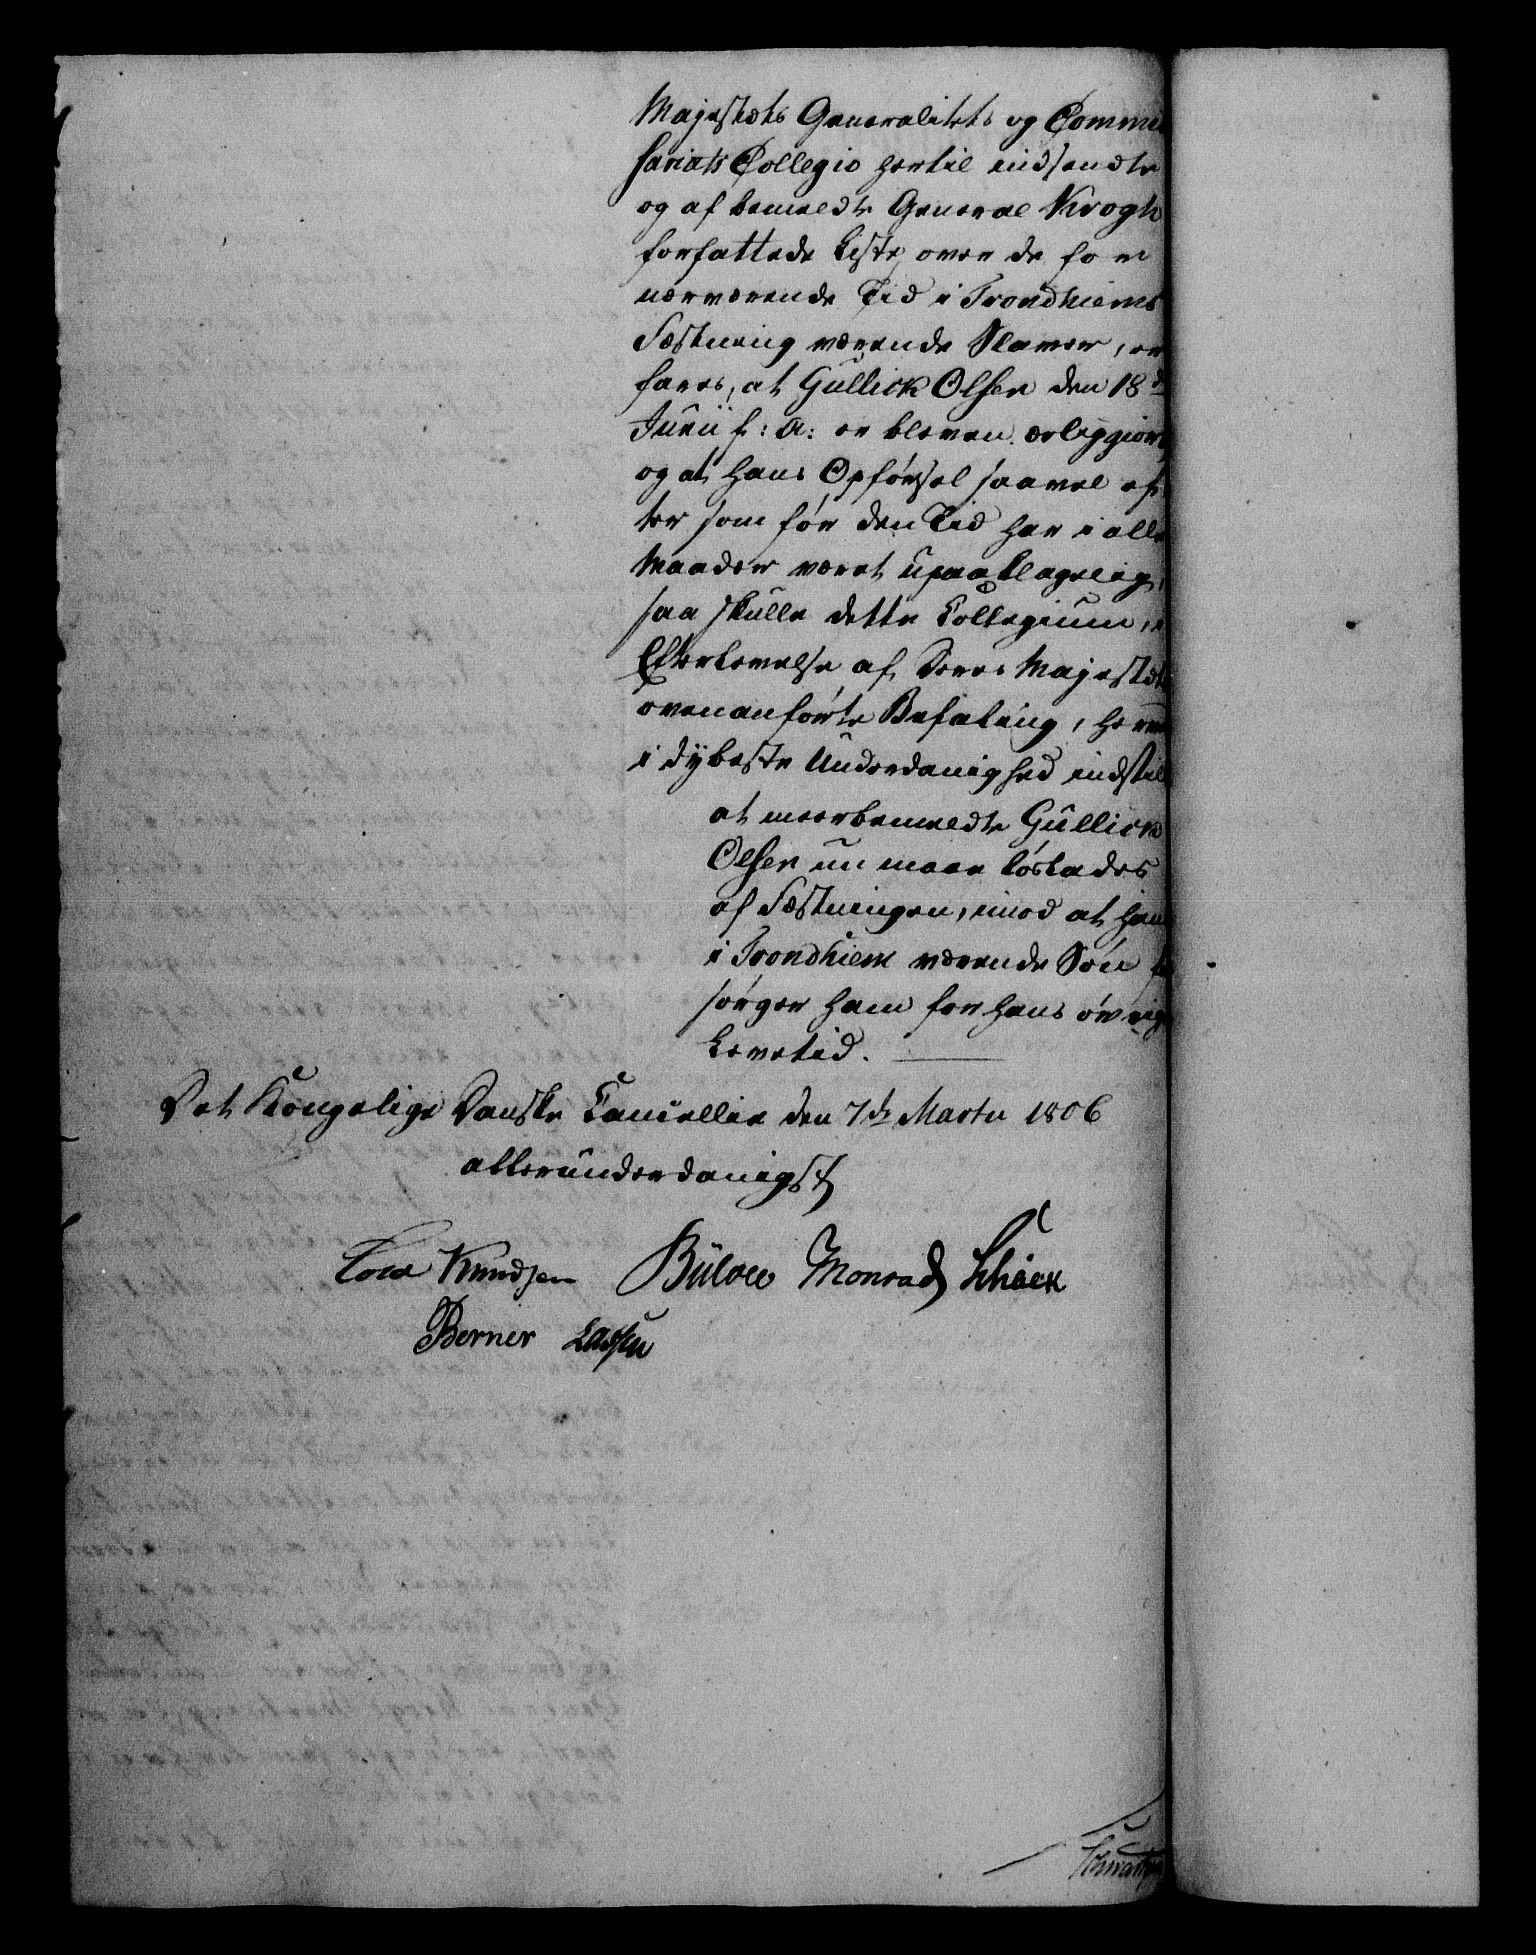 Majestæts Generalitets og Commis
sariats Collegio hertil indsendte
og af bemeldte General Krogh
forfattede Liste over de for
nærværende Tid i Trondhiems
Fæstning værende Slaver, er
fares, at Gullick Olsen den 18de
Junii f: A: er bleven ærliggiort
og at hans Opførsel saavel ef
ter som før den Tid har i alle
Maader været upaaklagelig,
saa skulle dette Collegium, i
Efterlevelse af Deres Majestæts
ovenanførte Befaling, herved
i dybeste Underdanighed indstille
at meerbemeldte Gullick
Olsen nu maae løslades
af Fæstningen, imod at hans
i Trondhiem værende Søn for
sørger ham for hans øvrige
Levetid.
Det Kongelige Danske Cancellie den 7de Martii 1806
allerunderdanigst
Knudsen Bülow Monrad Schack
Berner Lassen